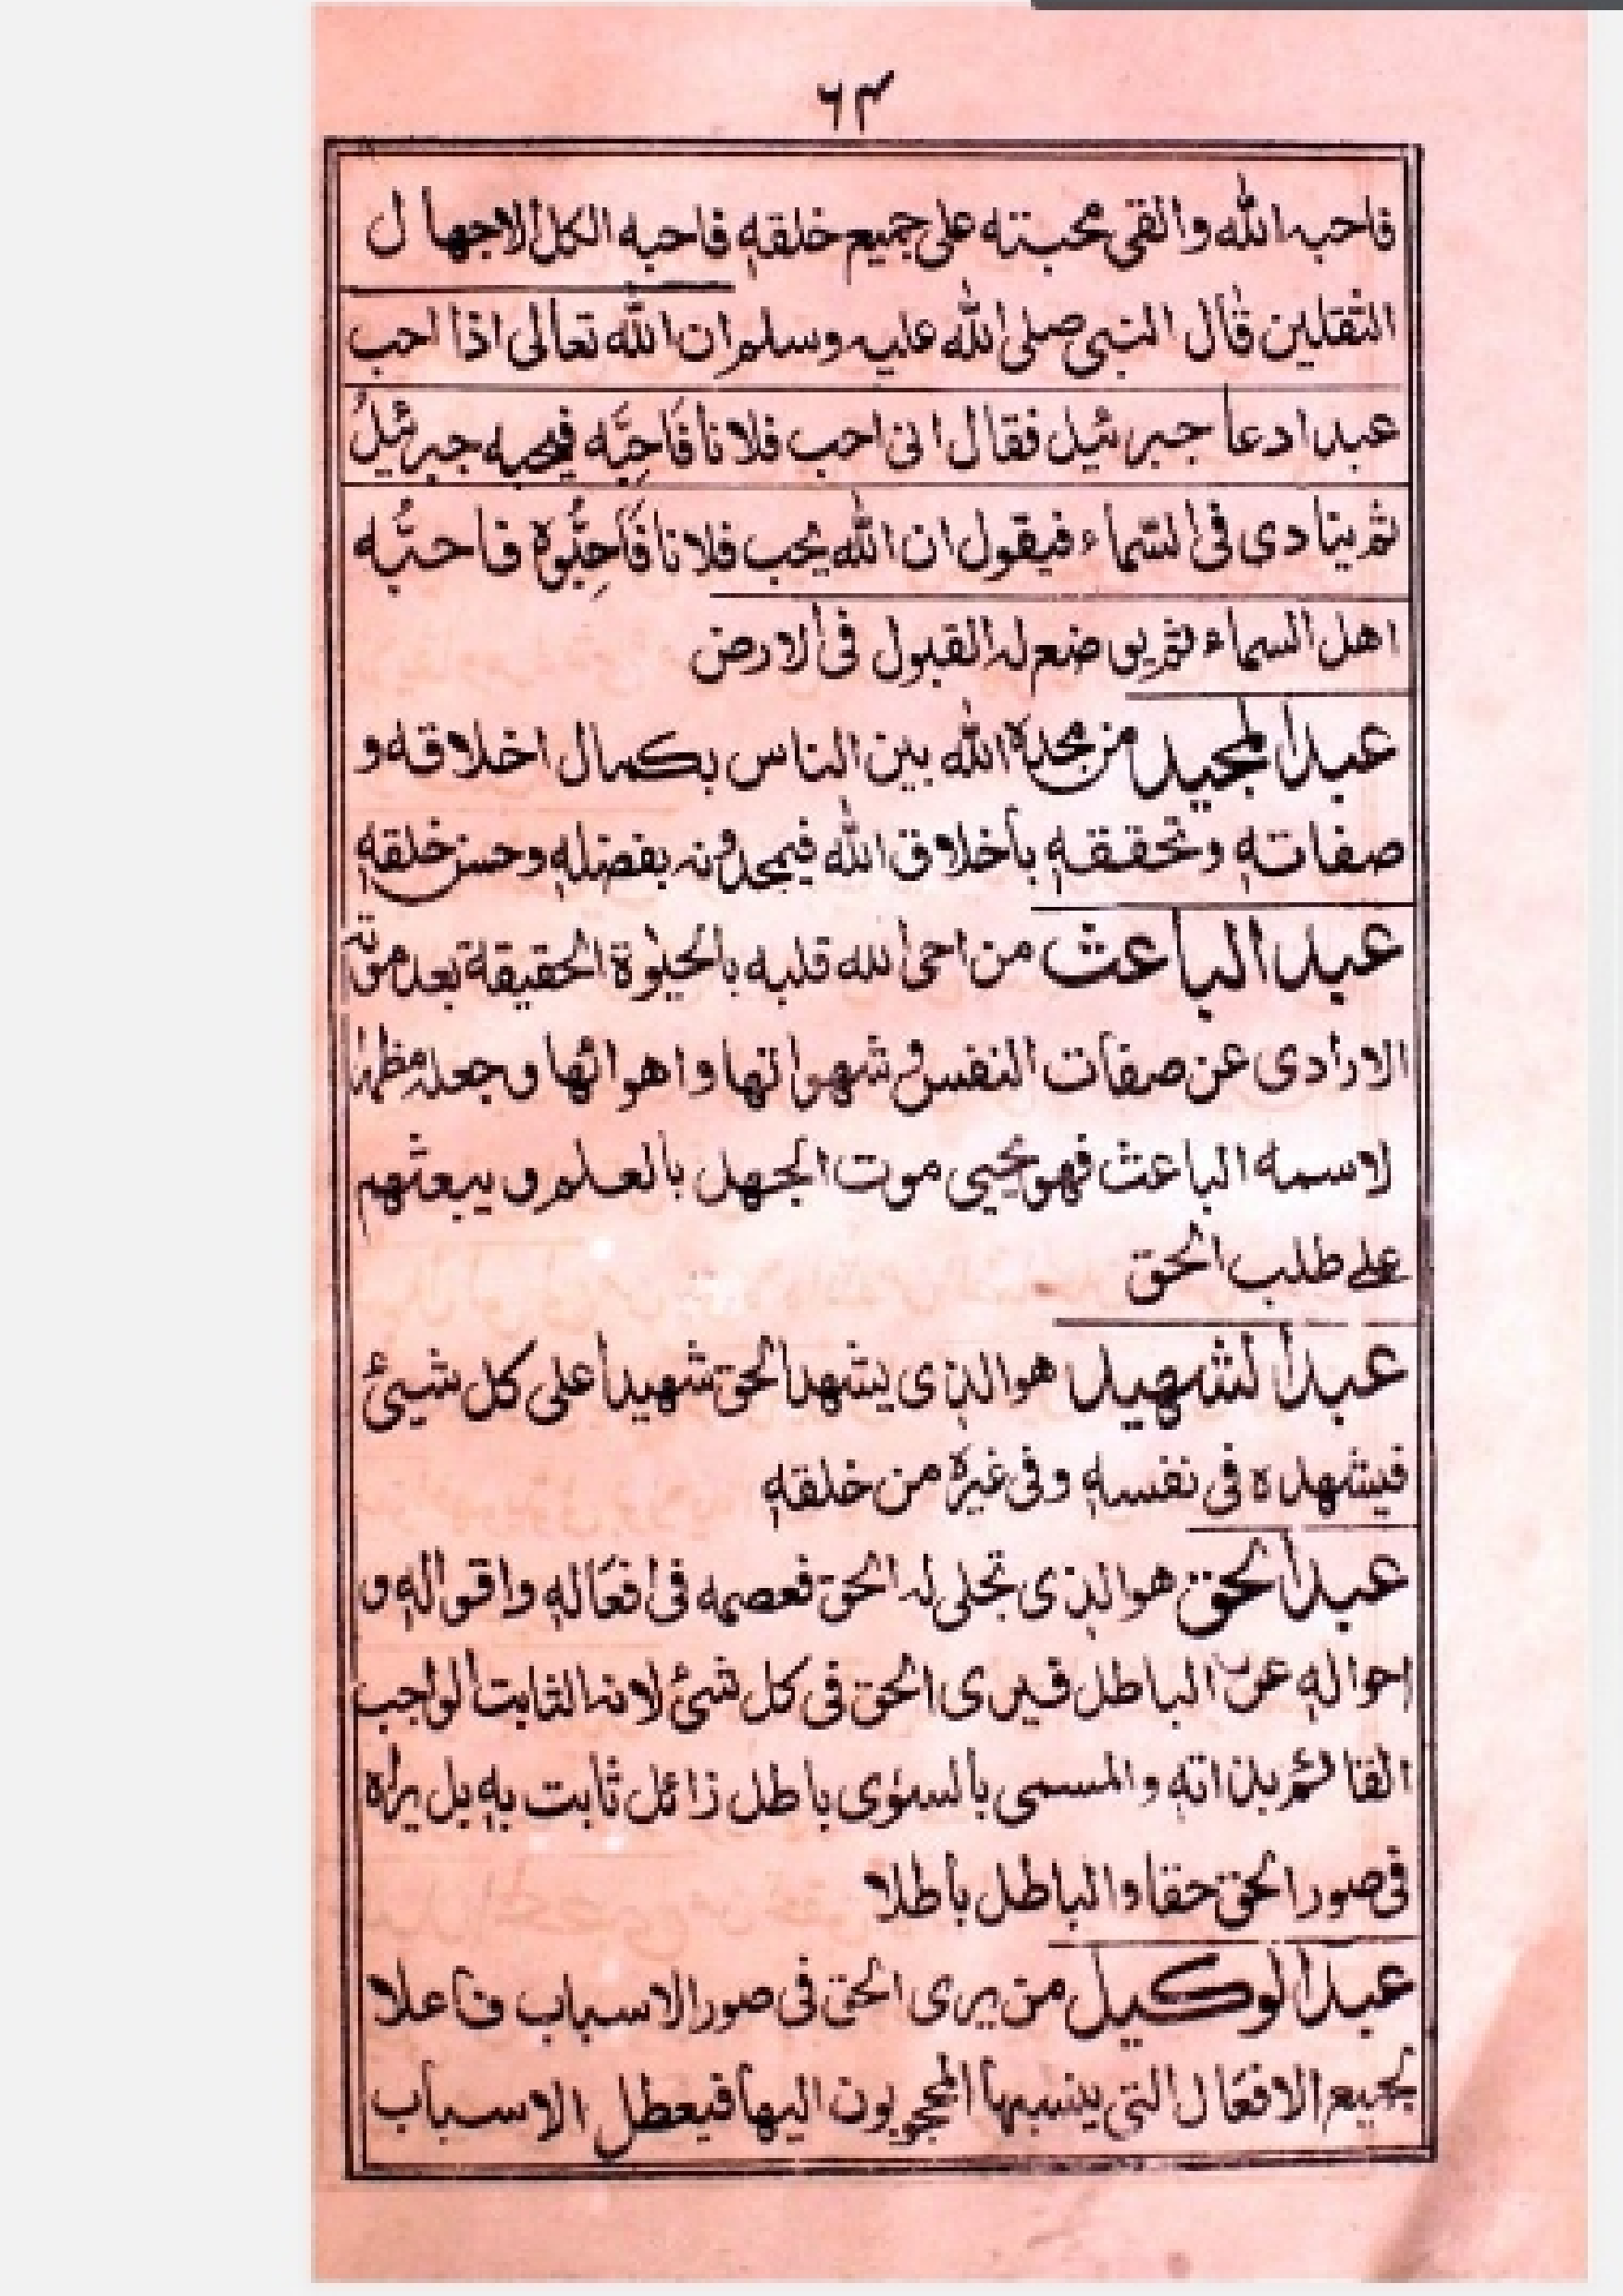 ٦٣
فاحبہ الله والقى محبته على جميع خلقهٖ فاحبه الكل الاجهال
الثقلين قال النبى صلى الله عليہ وسلم ان الله تعالى اذا احب
عبدا دعا جبرئيل فقال انى احب فلانا فَاَحِبَّه فيحبه جبرئيلُ
ثم ينادى فى السماء فيقول ان الله يحب فلانا فَاَحِبُّوہ فاحبُّه
اهل السماء ثم يوضع لہ القبول فى الارض
عبد المجيد من مجدہ الله بين الناس بكمال اخلاقه و
صفاتهٖ وتحققهٖ باخلاق الله فيمجدونہ بفضلهٖ وحسن خلقهٖ
عبد الباعث من احى الله قلبه بالحيٰوة الحقيقة بعد موتہ
الارادى عن صفات النفس وشهواتها واهوائها وجعلہ مظهرا
لاسمه الباعث فهو يحيى موت الجهل بالعلم ويبعثهم
علے طلب الحق
عبد الشهيد هو الذى يشهد الحق شهيدا على كل شيئ
فيشهدہ فى نفسهٖ وفى غيرہ من خلقهٖ
عبد الحق هو الذى تجلى لہ الحق فعصمه فى افعالهٖ واقوالهٖ و
احوالهٖ عن الباطل فيرى الحق فى كل شئ لانہ الثابت الواجب
القائم بذاتهٖ والمسمى بالسوٰى باطل زائل ثابت بهٖ بل يراہ
فى صور الحق حقا والباطل باطلا
عبد الوكيل من يرى الحق فى صور الاسباب فاعلا
لجميع الافعال التى ينسبها المحجوبون اليها فيعطل الاسباب